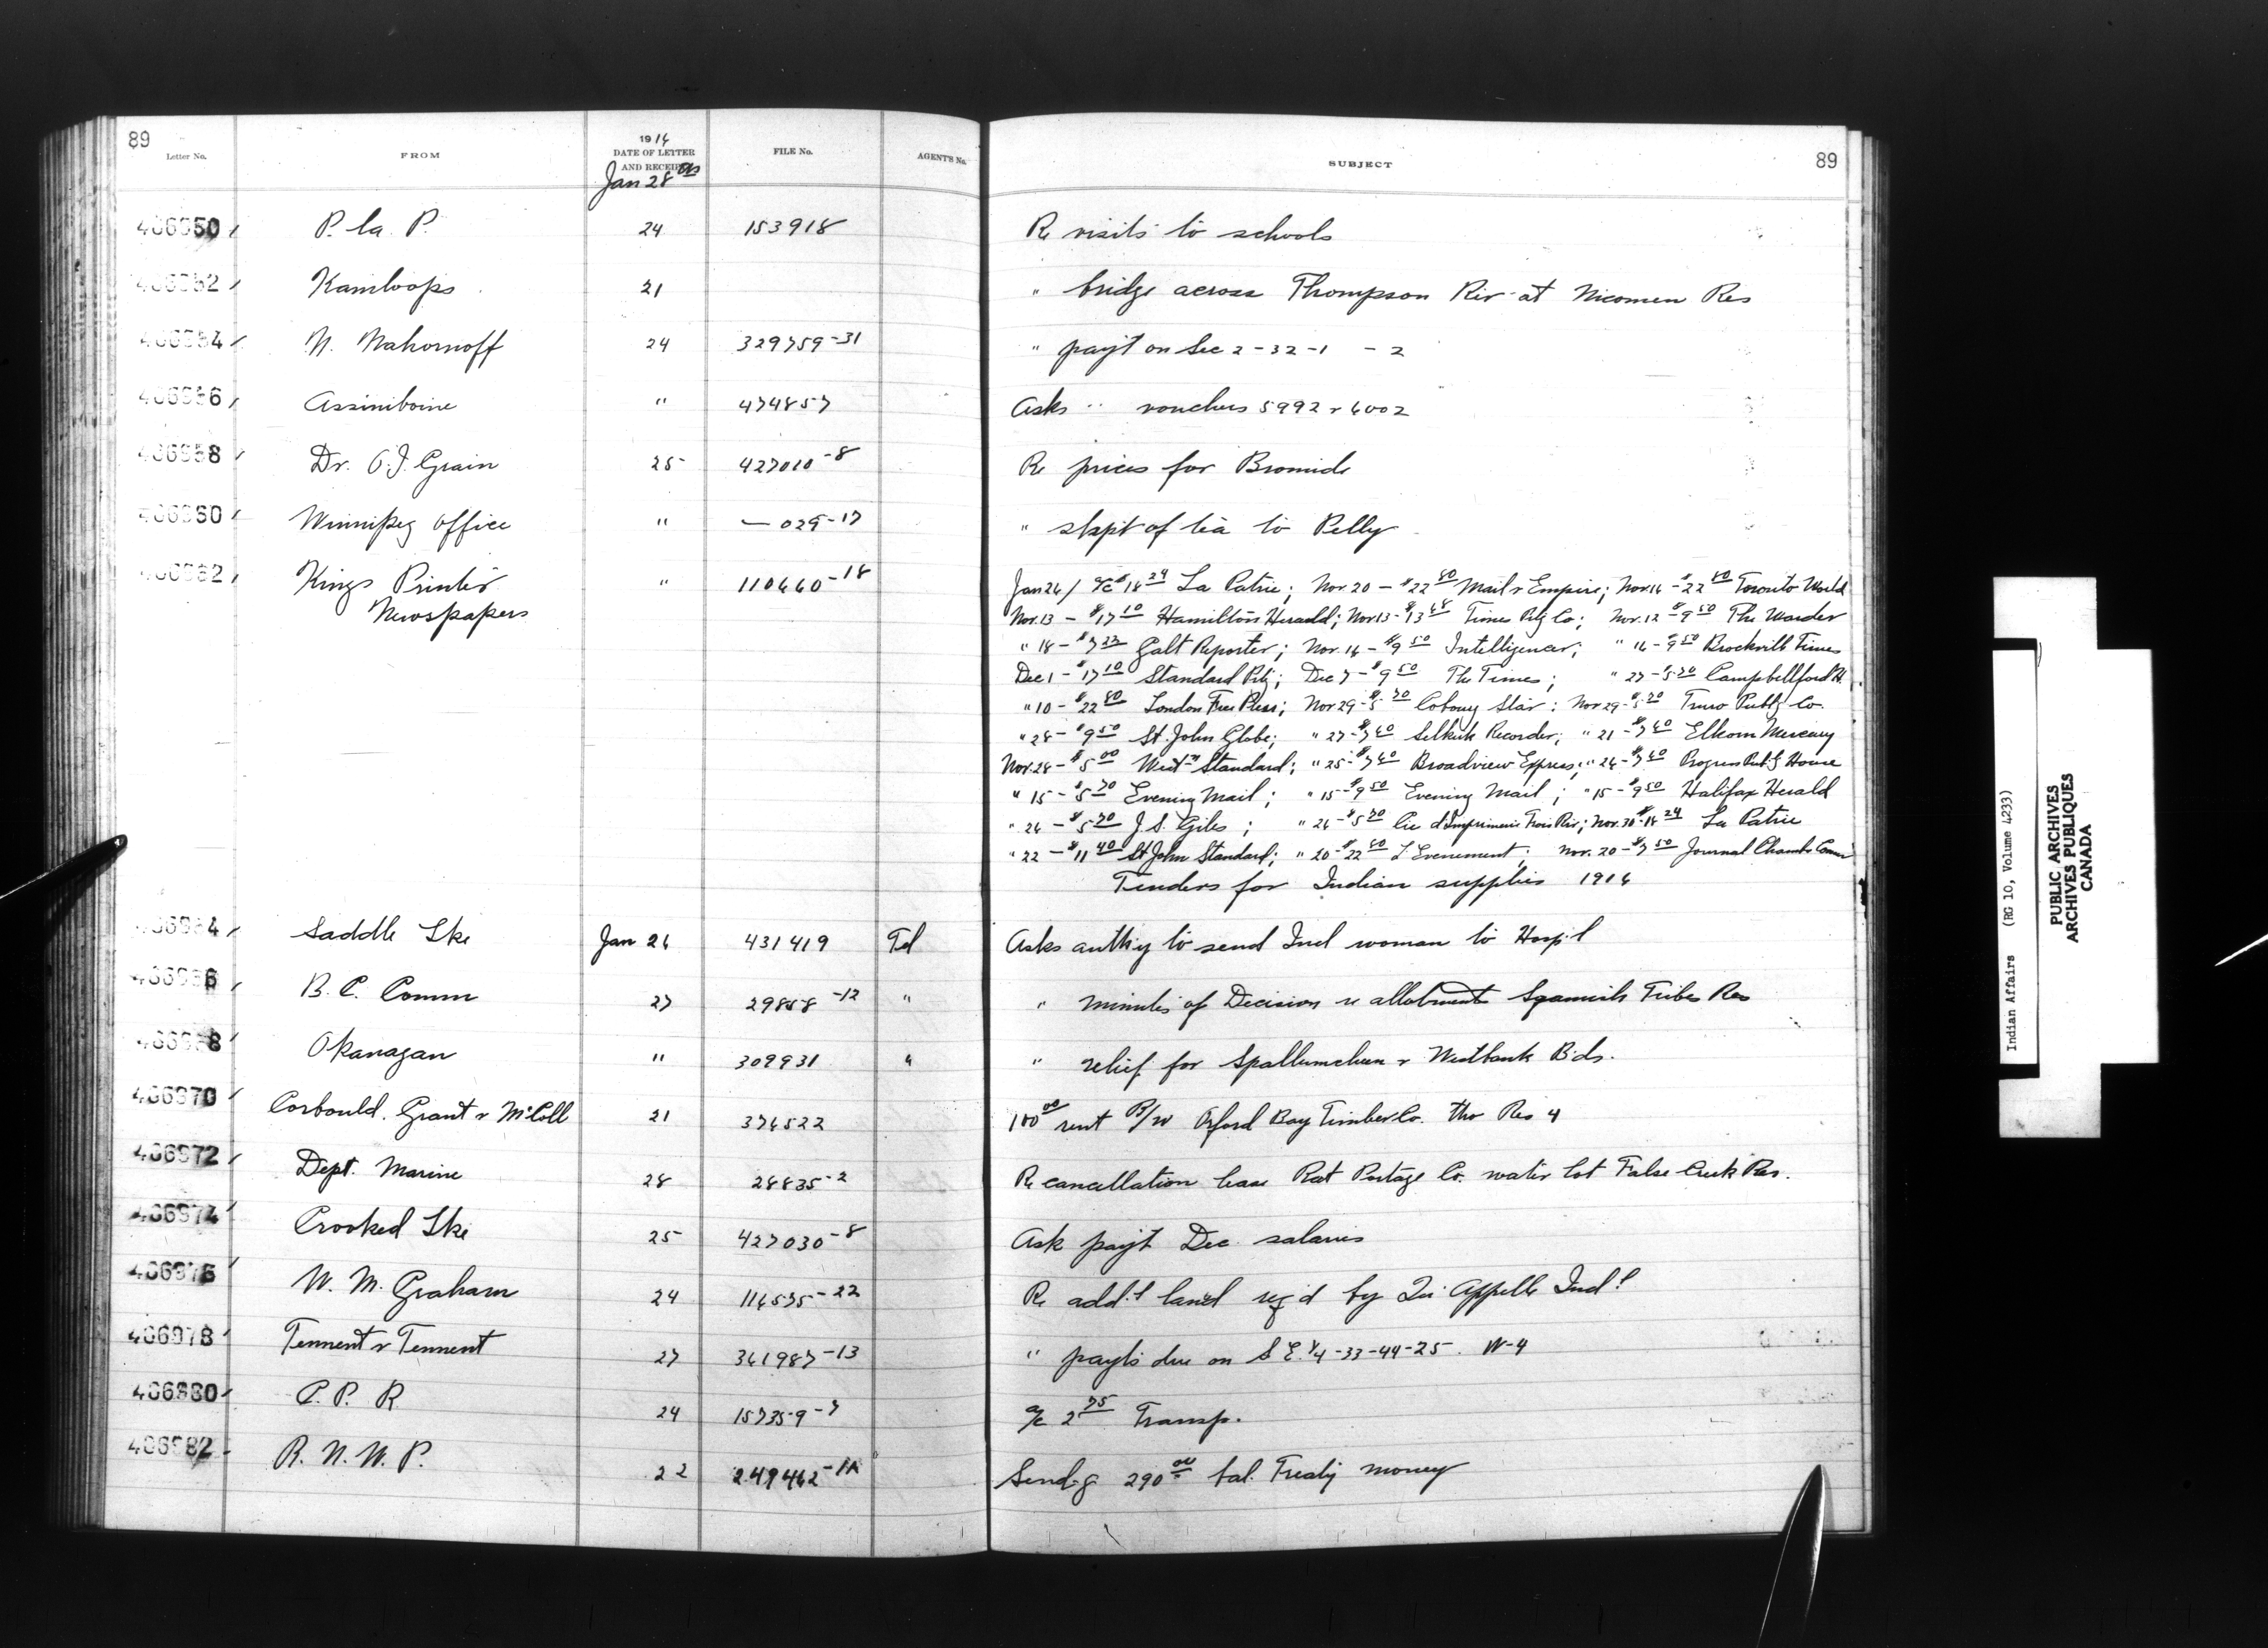 89
Letter No. FROM 1916 DATE OF LETTER AND RECEIPT FILE No. AGENT'S No. SUBJECT 89
Jan 28
406950 P. la P. 24 153918 Re visits to schools
406952 Kamloops 21 " bridge across Thompson Riv at Nicomen Res
406954 N. Mahornoff 24 329759-31 " payt on Sec 2-32-1 - 2
406956 Assiniboine " 474857 Asks " vouchers 5992 & 6002
406958 Dr. O.J. Grain 25 427010-8 Re prices for Bromide
406960 Winnipeg Office " — 029-17 " shpt of tea to Pelly
406962 Kings Printer " 110660-18 Jan 26/ a/c $18 24 La Patrie; Nov 20 - $22 80 Mail & Empire; Nov 14 - $22 80 Toronto World
Newspapers Nov. 13 - $17 10 Hamilton Herald; Nov 13 - $13 68 Times Ptg Co; Nov. 12 $9 50 The Warder
" 18 - $7 23 Galt Reporter; Nov. 16 - $9 50 Intelligencer; " 16 - $9 50 Brockville Times
Dec 1 - $17 10 Standard Ptg; Dec 7 - $9 50 The Times; " 27 - 5 70 Campbellford H.
" 10 - $22 80 London Free Press; Nov 29 - $5 70 Cobourg Star; Nov 29 - $5 70 Truro Publg Co.
" 28 - $9 50 St. John Globe; " 27 - $7 60 Selkirk Recorder; " 21 - $7 60 Elkorn Mercury
Nov. 28 - $5 00 West'n Standard; " 25 - $7 60 Broadview Express; " 24 - $7 60 Progress Publ'g House
" 15 - $5 70 Evening Mail; " 15 - $9 50 Evening Mail; " 15 - $9 50 Halifax Herald
" 26 - $5 70 J. S. Giles; " 26 - $5 70 Cie d'Imprimerie Trois Riv; Nov. 30 - $18 24 La Patrie
" 22 - $11 40 St John Standard; " 20 - $22 80 L'Evenement; Nov. 20 - $7 50 Journal Chamb Comm
Tenders for Indian supplies 1916
406964 Saddle Lke Jan 26 431419 Tel Asks auth'y to send Ind woman to Hosp'l
406966 B. C. Comm 27 29858-12 " " minutes of Decision re allotments Squamish Tribes Res
406968 Okanagan " 309931 " " relief for Spallumcheen & Westbank Bds.
406970 Corbould, Grant & McColl 21 376522 100 00 rent B/W Orford Bay Timber Co. thro Res 4
406972 Dept. Marine 28 28835-2 Re cancellation lease Rat Portage Co. water lot False Creek Res.
406974 Crooked Lke 25 427030-8 Ask payt Dec. salaries
406976 W. M. Graham 24 116575-22 Re add'l land req'd by Qu'Appelle Ind'l
406978 Tennent & Tennent 27 361987-13 " payts due on S E. 1/4-33-44-25. W-4
406980 C. P. R 24 157359-7 a/c 2 75 Transp.
406982 R. N. W. P. 22 249462-1A Send'g 290 00 bal. Treaty money
Indian Affairs (RG 10, Volume 4233)
PUBLIC ARCHIVES
ARCHIVES PUBLIQUES
CANADA